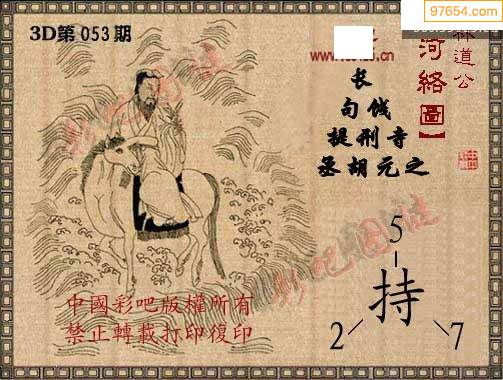 97654.com
3D第053期
林道公
河絡圖】
长
句伐
提刑寺
丞胡元之
5
持
2
7
彩吧图谜
彩吧图谜
中國彩吧版權所有
禁止轉載打印復印